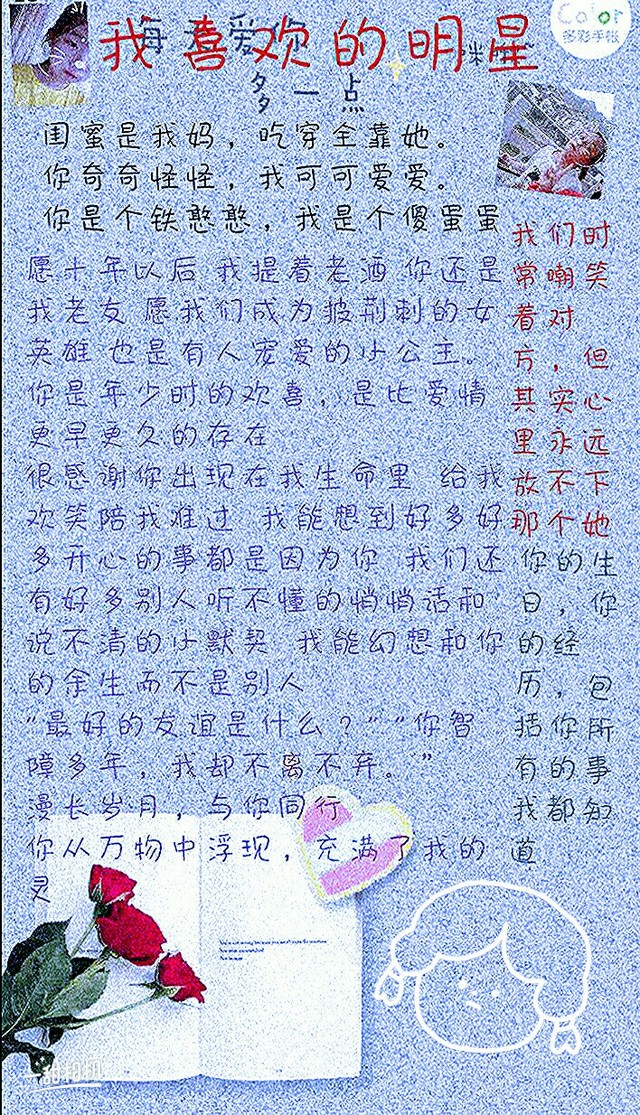 我喜欢的明星
每天爱你
多一点
Color
多彩手帐
闺蜜是我妈，吃穿全靠她。
你奇奇怪怪，我可可爱爱。
你是个铁憨憨，我是个傻蛋蛋
愿十年以后 我提着老酒 你还是
我老友 愿我们成为披荆刺的女
英雄 也是有人宠爱的小公王。
你是年少时的欢喜，是比爱情
更早更久的存在
很感谢你出现在我生命里 给我
欢笑陪我难过 我能想到好多好
多开心的事都是因为你 我们还
有好多别人听不懂的悄悄话和
说不清的小默契 我能幻想和你
的余生而不是别人
“最好的友谊是什么？”“你智
障多年，我却不离不弃。”
漫长岁月，与你同行
你从万物中浮现，充满了我的
灵
我们时
常嘲笑
着对
方，但
其实心
里永远
放不下
那个她
你的生
日，你
的经
历，包
括你所
有的事
我都知
道
一甜相机